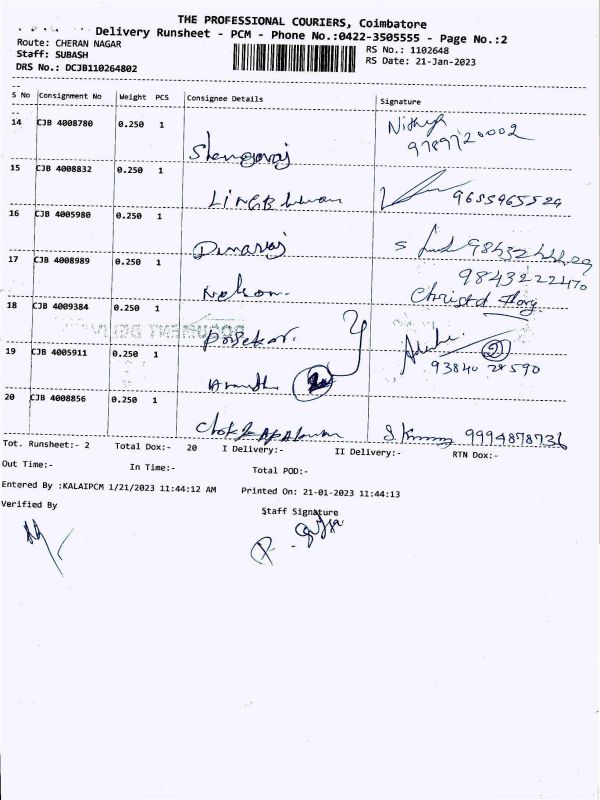 THE PROFESSIONAL COURIERS, Coimbatore
Delivery Runsheet - PCM - Phone No.:0422-3505555 - Page No.:2
Route: CHERAN NAGAR
RS No.: 1102648
Staff: SUBASH
RS Date: 21-Jan-2023
DRS No.: DCJB110264802
S No Consignment No Weight PCS Consignee Details Signature
14 CJB 4008780 0.250 1
Nithya
9789720002
15 CJB 4008832 0.250 1
9655965524
16 CJB 4005980 0.250 1
Dinaraj
17 CJB 4008989 0.250 1
9843222470
Nelson.
Christed
18 CJB 4009384 0.250 1
19 CJB 4005911 0.250 1
2
93840 28590
20 CJB 4008856 0.250 1
9994878736
Tot. Runsheet:- 2 Total Dox:- 20 I Delivery:- II Delivery:- RTN Dox:-
Out Time:- In Time:- Total POD:-
Entered By :KALAIPCM 1/21/2023 11:44:12 AM Printed On: 21-01-2023 11:44:13
Verified By
Staff Signature